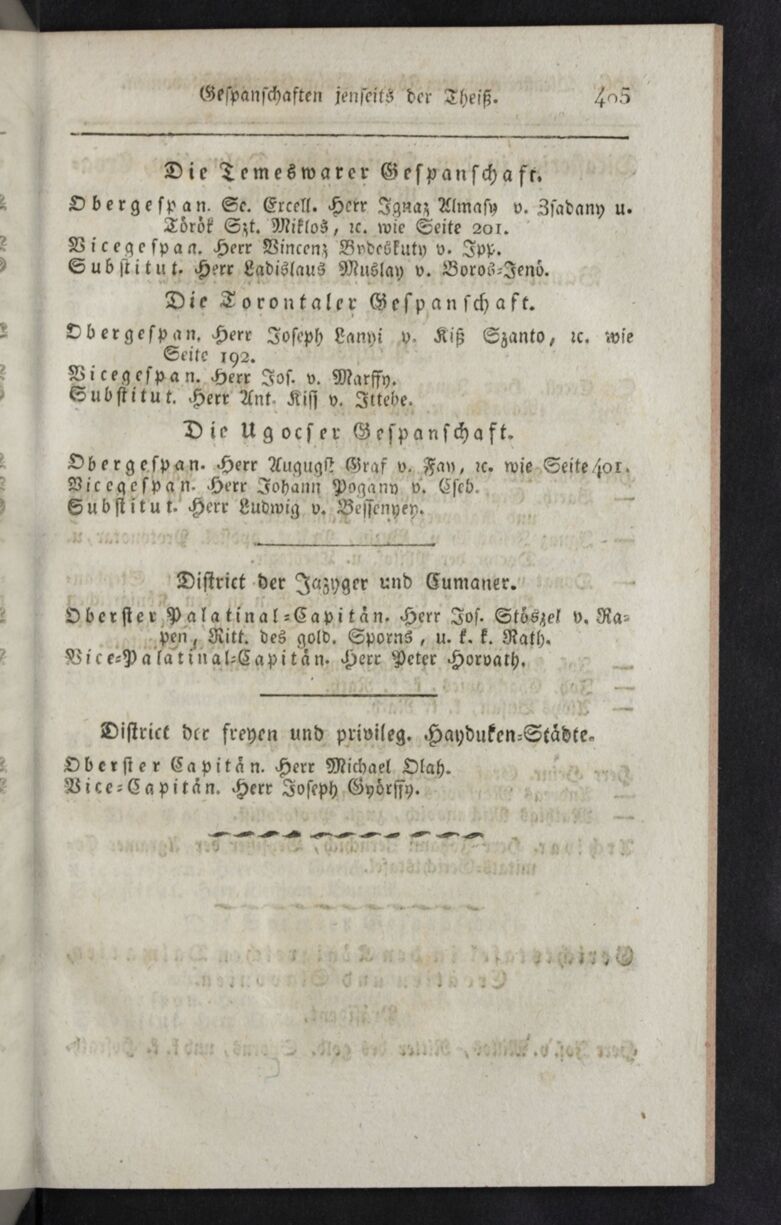 Gespanschaften jenseits der Theiß. 405
Die Temeswarer Gespanschaft.
Obergespan. Se. Excell. Herr Ignaz Almasy v. Zsadany u.
Török Szt. Miklos, ꝛc. wie Seite 201.
Vicegespan. Herr Vincenz Bydeskuty v. Ipp.
Substitut. Herr Ladislaus Muslay v. Boros-Jenö.
Die Torontaler Gespanschaft.
Obergespan. Herr Joseph Lanyi v. Kiß Szanto, ꝛc. wie
Seite 192.
Vicegespan. Herr Jos. v. Marffy.
Substitut. Herr Ant. Kiss v. Ittebe.
Die Ugocser Gespanschaft.
Obergespan. Herr Augugst Graf v. Fay, ꝛc. wie Seite 401.
Vicegespan. Herr Johann Pogany v. Cseb.
Substitut. Herr Ludwig v. Bessenyey.
District der Jazyger und Cumaner.
Oberster Palatinal-Capitän. Herr Jos. Stöszel v. Ra-
pen, Ritt. des gold. Sporns, u. k. k. Rath.
Vice-Palatinal-Capitän. Herr Peter Horvath.
District der freyen und privileg. Hayduken-Städte.
Oberster Capitän. Herr Michael Olah.
Vice-Capitän. Herr Joseph Györffy.